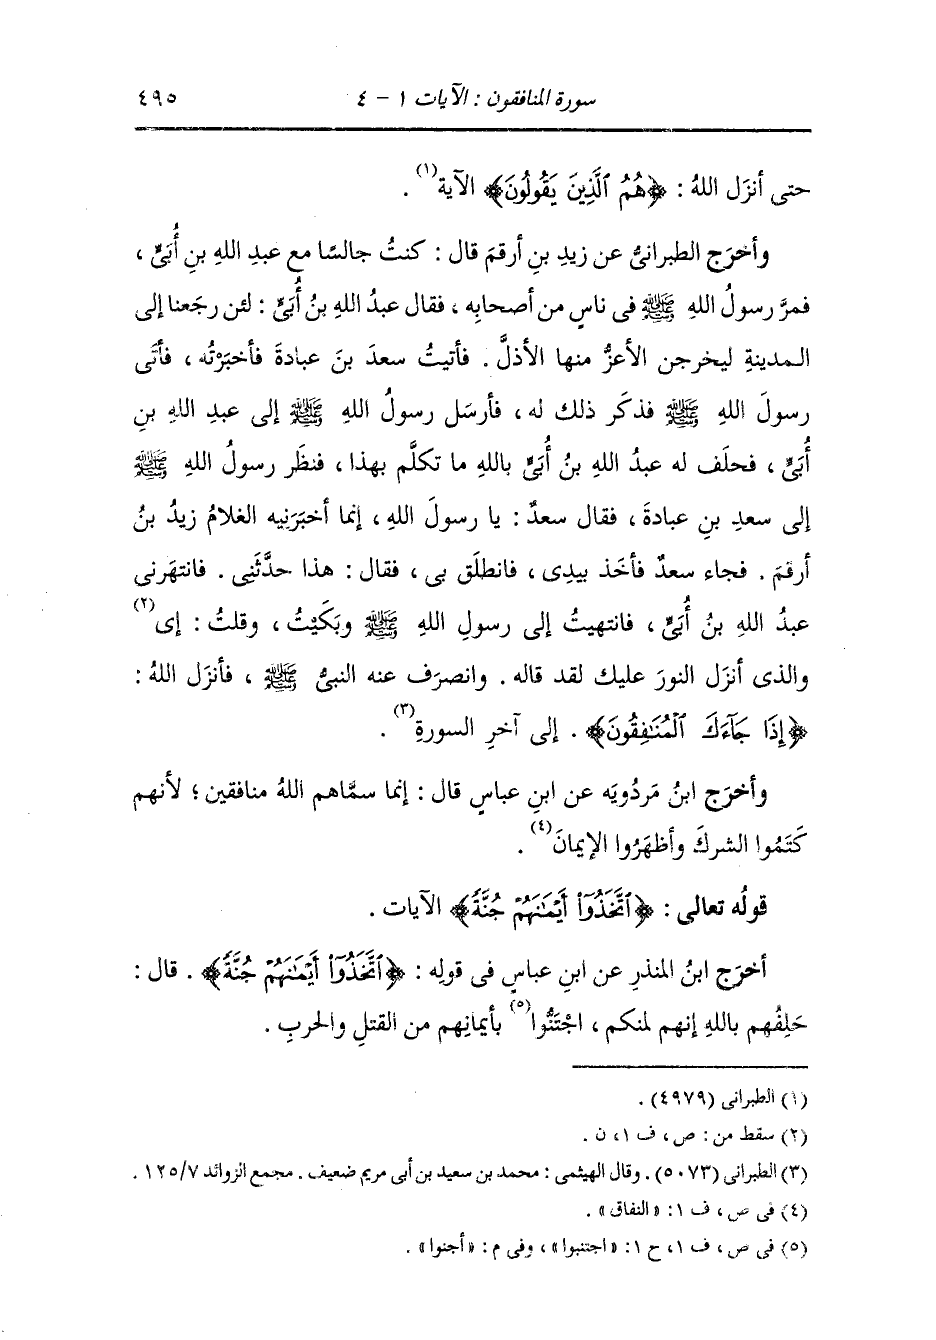 سورة المنافقون : الآيات ١ - ٤ ٤٩٥
حتى أنزَل اللهُ : ﴿هُمُ ٱلَّذِينَ يَقُولُونَ﴾ الآية(١) .
وأخرَج الطبرانىُّ عن زيدِ بنِ أرقمَ قال : كنتُ جالسًا مع عبدِ اللهِ بنِ أُبَىٍّ ،
فمرَّ رسولُ اللهِ ﷺ فى ناسٍ من أصحابِه ، فقال عبدُ اللهِ بنُ أُبَىٍّ : لئن رجَعنا إلى
المدينةِ ليخرجن الأعزُّ منها الأذلَّ . فأتيتُ سعدَ بنَ عبادةَ فأخبَرْتُه ، فأتَى
رسولَ اللهِ ﷺ فذكَر ذلك له ، فأرسَل رسولُ اللهِ ﷺ إلى عبدِ اللهِ بنِ
أُبَىٍّ ، فحلَف له عبدُ اللهِ بنُ أُبَىٍّ باللهِ ما تكلَّم بهذا ، فنظَر رسولُ اللهِ ﷺ
إلى سعدِ بنِ عبادةَ ، فقال سعدٌ : يا رسولَ اللهِ ، إنما أخبَرَنِيه الغلامُ زيدُ بنُ
أرقمَ . فجاء سعدٌ فأخَذ بيدِى ، فانطلَق بى ، فقال : هذا حدَّثَنِى . فانتهَرنى
عبدُ اللهِ بنُ أُبَىٍّ ، فانتهيتُ إلى رسولِ اللهِ ﷺ وبَكَيْتُ ، وقلتُ : إى(٢)
والذى أنزَل النورَ عليك لقد قاله . وانصرَف عنه النبىُّ ﷺ ، فأنزَل اللهُ :
﴿إِذَا جَآءَكَ ٱلْمُنَـٰفِقُونَ﴾ . إلى آخرِ السورةِ(٣) .
وأخرَج ابنُ مَردُويَه عن ابنِ عباسٍ قال : إنما سمَّاهم اللهُ منافقين ؛ لأنهم
كَتَمُوا الشركَ وأظهَرُوا الإيمانَ(٤) .
قولُه تعالى : ﴿ٱتَّخَذُوٓا۟ أَيْمَـٰنَهُمْ جُنَّةً﴾ الآيات .
أخرَج ابنُ المنذرِ عن ابنِ عباسٍ فى قولِه : ﴿ٱتَّخَذُوٓا۟ أَيْمَـٰنَهُمْ جُنَّةً﴾ . قال :
حَلِفُهم باللهِ إنهم لمنكم ، اجْتَنُّوا(٥) بأيمانِهم من القتلِ والحربِ .
(١) الطبرانى (٤٩٧٩) .
(٢) سقط من : ص ، ف ١، ن .
(٣) الطبرانى (٥٠٧٣) . وقال الهيثمى : محمد بن سعيد بن أبى مريم ضعيف . مجمع الزوائد ١٢٥/٧ .
(٤) فى ص ، ف ١: « النفاق » .
(٥) فى ص ، ف ١، ح ١: « اجتنبوا » ، وفى م : « أجنوا » .